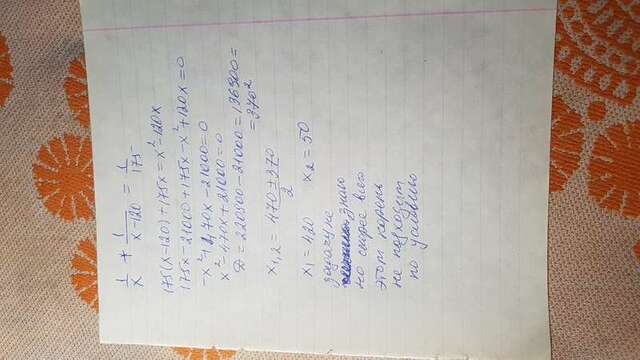 1/x + 1/(x-120) = 1/175
175(x-120)+175x = x²-120x
175x-21000+175x-x²+120x=0
-x²+470x-21000=0
x²-470x+21000=0
D=220900-21000=136900=
=370²
x₁,₂ = (470±370)/2
x₁=420 x₂=50
задачу не
знаю
но скорее всего
этот корень
не подходит
по условию